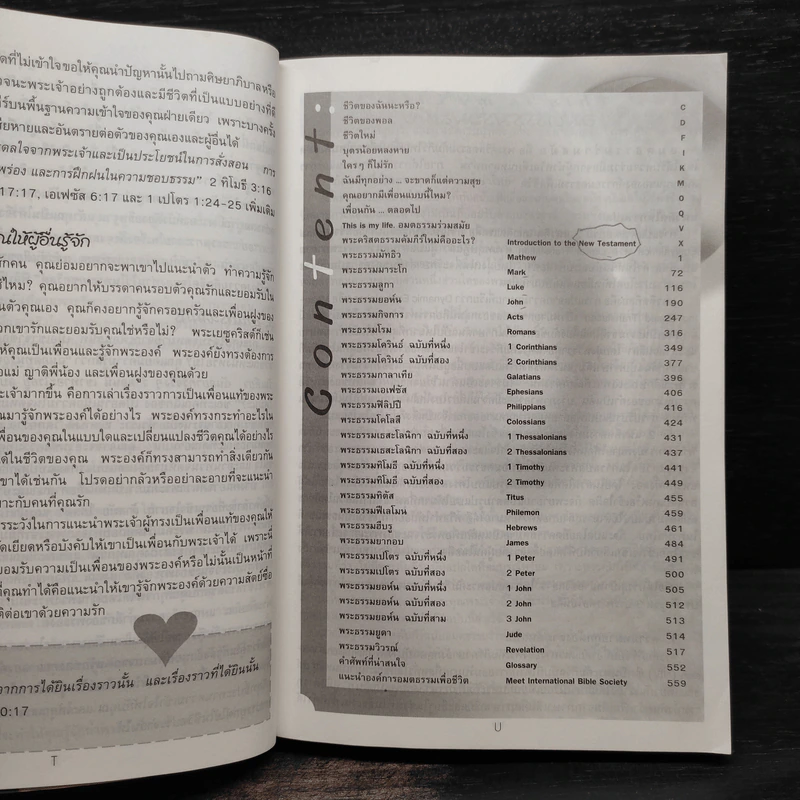 ดที่ไม่เข้าใจขอให้คุณนำปัญหานั้นไปถามศิษยาภิบาลหรือ
วจนะพระเจ้าอย่างถูกต้องและมีชีวิตที่เป็นแบบอย่างที่ดี
ร์บนพื้นฐานความเข้าใจของคุณฝ่ายเดียว เพราะบางครั้ง
สียหายและอันตรายต่อตัวของคุณเองและผู้อื่นได้
ดลใจจากพระเจ้าและเป็นประโยชน์ในการสั่งสอน การ
พร่อง และการฝึกฝนในความชอบธรรม" 2 ทิโมธี 3:16
17:17, เอเฟซัส 6:17 และ 1 เปโตร 1:24-25 เพิ่มเติม
ณ์ให้ผู้อื่นรู้จัก
รักคน คุณย่อมอยากจะพาเขาไปแนะนำตัว ทำความรู้จัก
ไหม? คุณอยากให้บรรดาคนรอบตัวคุณรักและยอมรับใน
นตัวคุณเอง คุณก็คงอยากรู้จักครอบครัวและเพื่อนฝูงของ
วกเขารักและยอมรับคุณใช่หรือไม่? พระเยซูคริสต์ก็เช่น
ห้คุณเป็นเพื่อนและรู้จักพระองค์ พระองค์ยังทรงต้องการ
อแม่ ญาติพี่น้อง และเพื่อนฝูงของคุณด้วย
ะเจ้ามากขึ้น คือการเล่าเรื่องราวการเป็นเพื่อนแท้ของพระ
ณมารู้จักพระองค์ได้อย่างไร พระองค์ทรงกระทำอะไรใน
เพื่อนของคุณในแบบใดและเปลี่ยนแปลงชีวิตคุณได้อย่างไร
ได้ในชีวิตของคุณ พระองค์ก็ทรงสามารถทำสิ่งเดียวกัน
ขาได้เช่นกัน โปรดอย่ากลัวหรืออย่าละอายที่จะแนะนำ
าะกับคนที่คุณรัก
รระวังในการแนะนำพระเจ้าผู้ทรงเป็นเพื่อนแท้ของคุณให้
ัดเยียดหรือบังคับให้เขาเป็นเพื่อนกับพระเจ้าได้ เพราะนี่
ยอมรับความเป็นเพื่อนของพระองค์หรือไม่นั้นเป็นหน้าที่
ี่คุณทำได้คือแนะนำให้เขารู้จักพระองค์ด้วยความสัตย์ซื่อ
ติต่อเขาด้วยความรัก
จากการได้ยินเรื่องราวนั้น และเรื่องราวที่ได้ยินนั้น
0:17
T
Content
ชีวิตของฉันนะหรือ? C
ชีวิตของพอล D
ชีวิตใหม่ F
บุตรน้อยหลงหาย I
ใครๆ ก็ไม่รัก K
ฉันมีทุกอย่าง ... จะขาดก็แต่ความสุข M
คุณอยากมีเพื่อนแบบนี้ไหม? O
เพื่อนกัน ... ตลอดไป Q
This is my life. อมตธรรมร่วมสมัย V
พระคริสตธรรมคัมภีร์ใหม่คืออะไร? Introduction to the New Testament X
พระธรรมมัทธิว Mathew 1
พระธรรมมาระโก Mark 72
พระธรรมลูกา Luke 116
พระธรรมยอห์น John 190
พระธรรมกิจการ Acts 247
พระธรรมโรม Romans 316
พระธรรมโครินธ์ ฉบับที่หนึ่ง 1 Corinthians 349
พระธรรมโครินธ์ ฉบับที่สอง 2 Corinthians 377
พระธรรมกาลาเทีย Galatians 396
พระธรรมเอเฟซัส Ephesians 406
พระธรรมฟีลิปปี Philippians 416
พระธรรมโคโลสี Colossians 424
พระธรรมเธสะโลนิกา ฉบับที่หนึ่ง 1 Thessalonians 431
พระธรรมเธสะโลนิกา ฉบับที่สอง 2 Thessalonians 437
พระธรรมทิโมธี ฉบับที่หนึ่ง 1 Timothy 441
พระธรรมทิโมธี ฉบับที่สอง 2 Timothy 449
พระธรรมทิตัส Titus 455
พระธรรมฟีเลโมน Philemon 459
พระธรรมฮีบรู Hebrews 461
พระธรรมยากอบ James 484
พระธรรมเปโตร ฉบับที่หนึ่ง 1 Peter 491
พระธรรมเปโตร ฉบับที่สอง 2 Peter 500
พระธรรมยอห์น ฉบับที่หนึ่ง 1 John 505
พระธรรมยอห์น ฉบับที่สอง 2 John 512
พระธรรมยอห์น ฉบับที่สาม 3 John 513
พระธรรมยูดา Jude 514
พระธรรมวิวรณ์ Revelation 517
คำศัพท์ที่น่าสนใจ Glossary 552
แนะนำองค์การอมตธรรมเพื่อชีวิต Meet International Bible Society 559
U